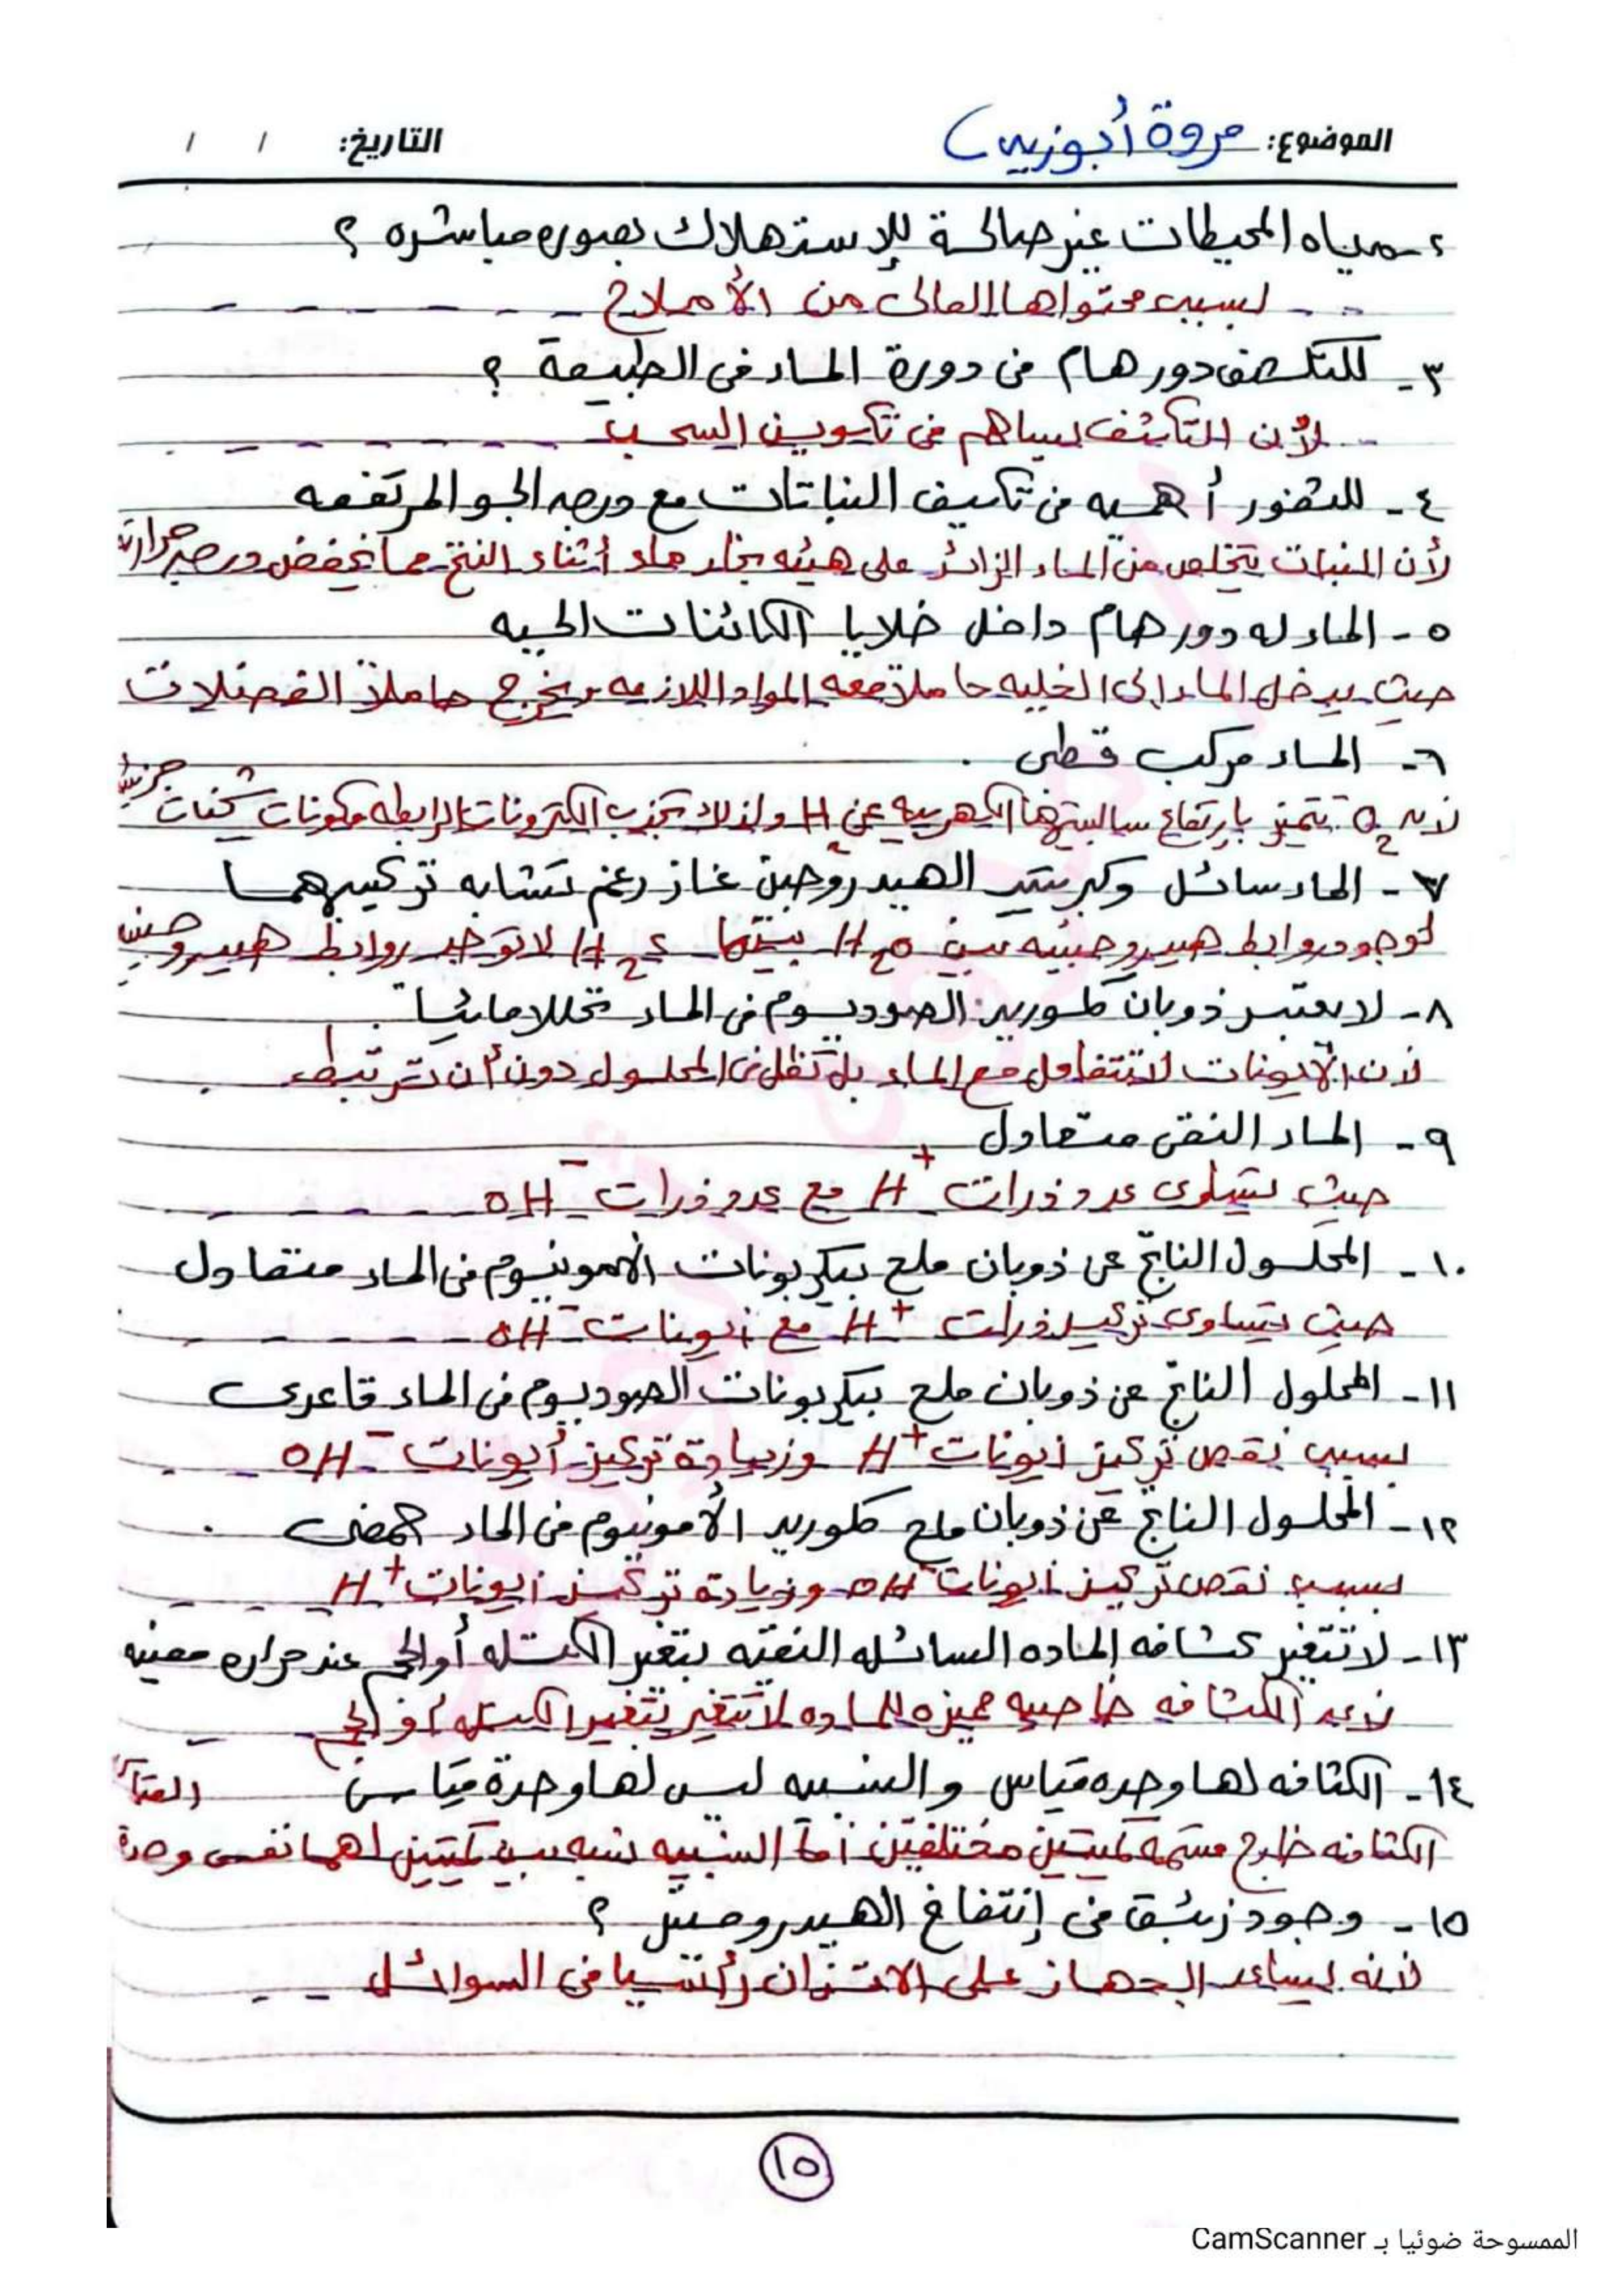 الموضوع: مروة أبوزيد
التاريخ: / /
٢- مياه المحيطات غير صالحة للإستهلاك بصوره مباشره ؟
لسبب محتواها العالى من الأملاح
٣- للتكثف دور هام فى دورة الماء فى الطبيعة ؟
لأن التكثف يساهم فى تكوين السحب
٤- للثغور أهميه فى تكيف النباتات مع درجه الجو المرتفعه
لأن النبات يتخلص من الماء الزائد على هيئه بخار ماء أثناء النتح مما يخفض درجه حرارته
٥- الماء له دور هام داخل خلايا الكائنات الحيه
حيث يدخل الماء إلى الخليه حاملا معه المواد اللازمه ويخرج حاملاً الفضلات
٦- الماء مركب قطبى .
لأن O₂ تتميز بارتفاع سالبيتها الكهربيه عن H₂ ولذلك تجذب الكترونات الرابطه مكونات شحنات جزئية
٧- الماء سائل وكبريتيد الهيدروجين غاز رغم تشابه تركيبهما
لوجود روابط هيدروجينيه بين H₂O بينما H₂S لا توجد روابط هيدروجينيه
٨- لا يعتبر ذوبان كلوريد الصوديوم فى الماء تحللا مائيا .
لأن الأيونات لا تتفاعل مع الماء بل تظل فى المحلول دون أن ترتبط .
٩- الماء النقى متعادل
حيث يتساوى عدد ذرات H⁺ مع عدد ذرات OH⁻
١٠- المحلول الناتج عن ذوبان ملح بيكربونات الأمونيوم فى الماء متعادل
حيث يتساوى تركيز ذرات H⁺ مع أيونات OH⁻
١١- المحلول الناتج عن ذوبان ملح بيكربونات الصوديوم فى الماء قاعدى
بسبب نقص تركيز أيونات H⁺ وزيادة تركيز أيونات OH⁻
١٢- المحلول الناتج عن ذوبان ملح كلوريد الأمونيوم فى الماء حمضى .
بسبب نقص تركيز أيونات OH⁻ وزيادة تركيز أيونات H⁺
١٣- لا تتغير كثافه الماده السائله النقيه بتغير الكتله أو الحجم عند حراره معينه
لأن الكثافه خاصيه مميزه للماده لا تتغير بتغير الكتله أو الحجم
١٤- الكثافه لها وحده قياس و النسبيه ليس لها وحدة قياس
الكثافه خارج قسمه كميتين مختلفتين أما النسبيه نسبه بين كميتين لهما نفس وحدة القياس
١٥- وجود زئبق فى إنتفاخ الهيدروميتر ؟
لأنه يساعد الجهاز على الاتزان رأسيا فى السوائل
١٥
الممسوحة ضوئيا بـ CamScanner